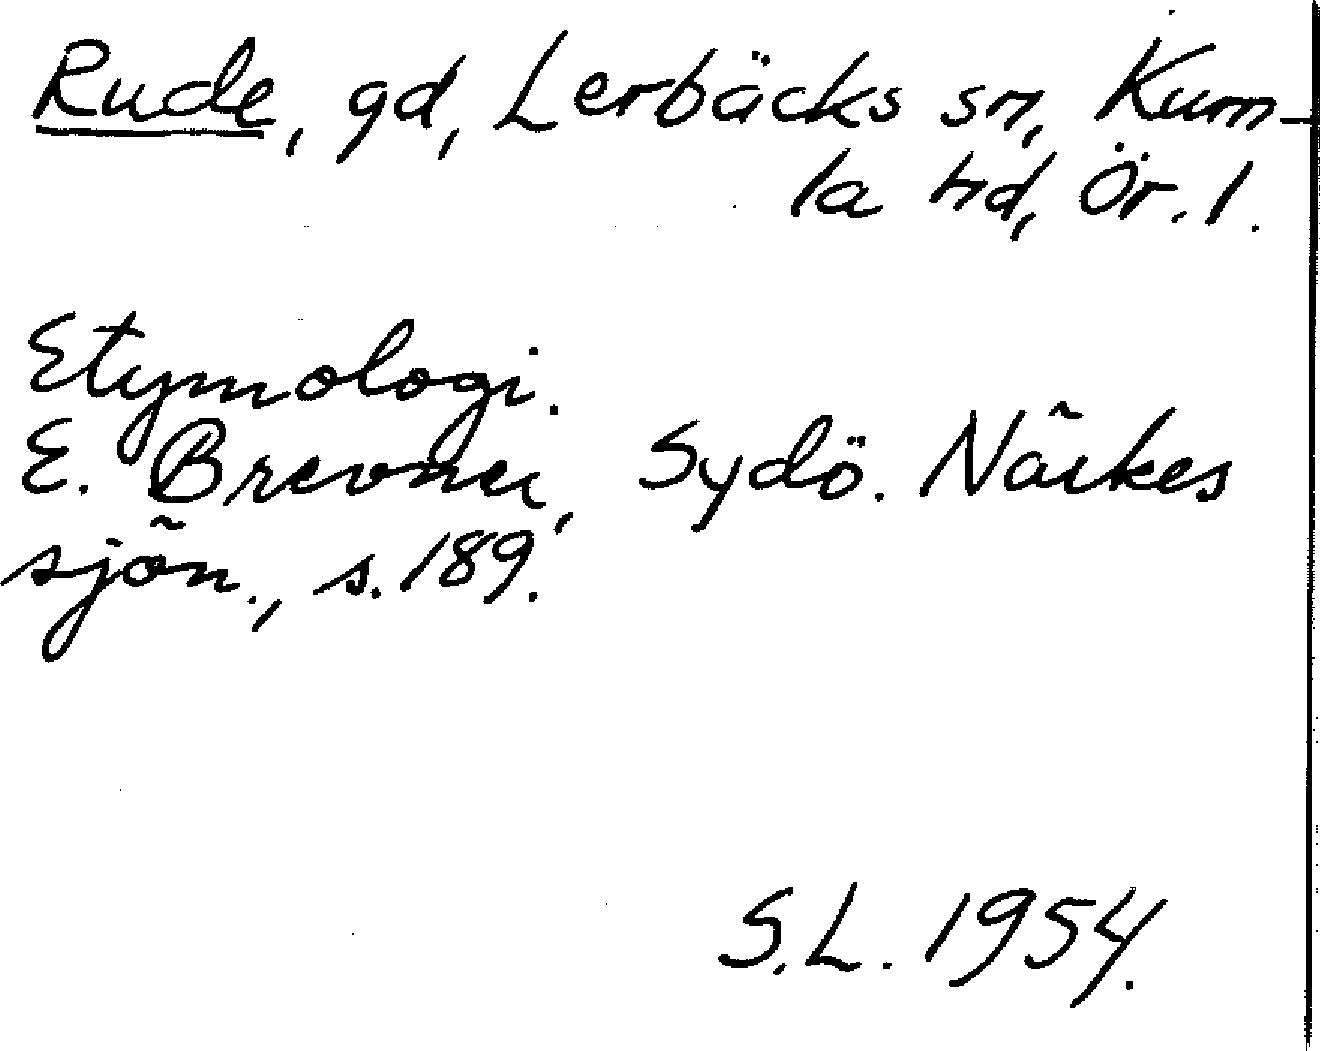 Rude, gd, Lerbäcks sn, Kum-
la hd, Ör. l.
Etymologi.
E. Brevner, Sydö. Närkes
sjön., s. 189.
S.L. 1954.